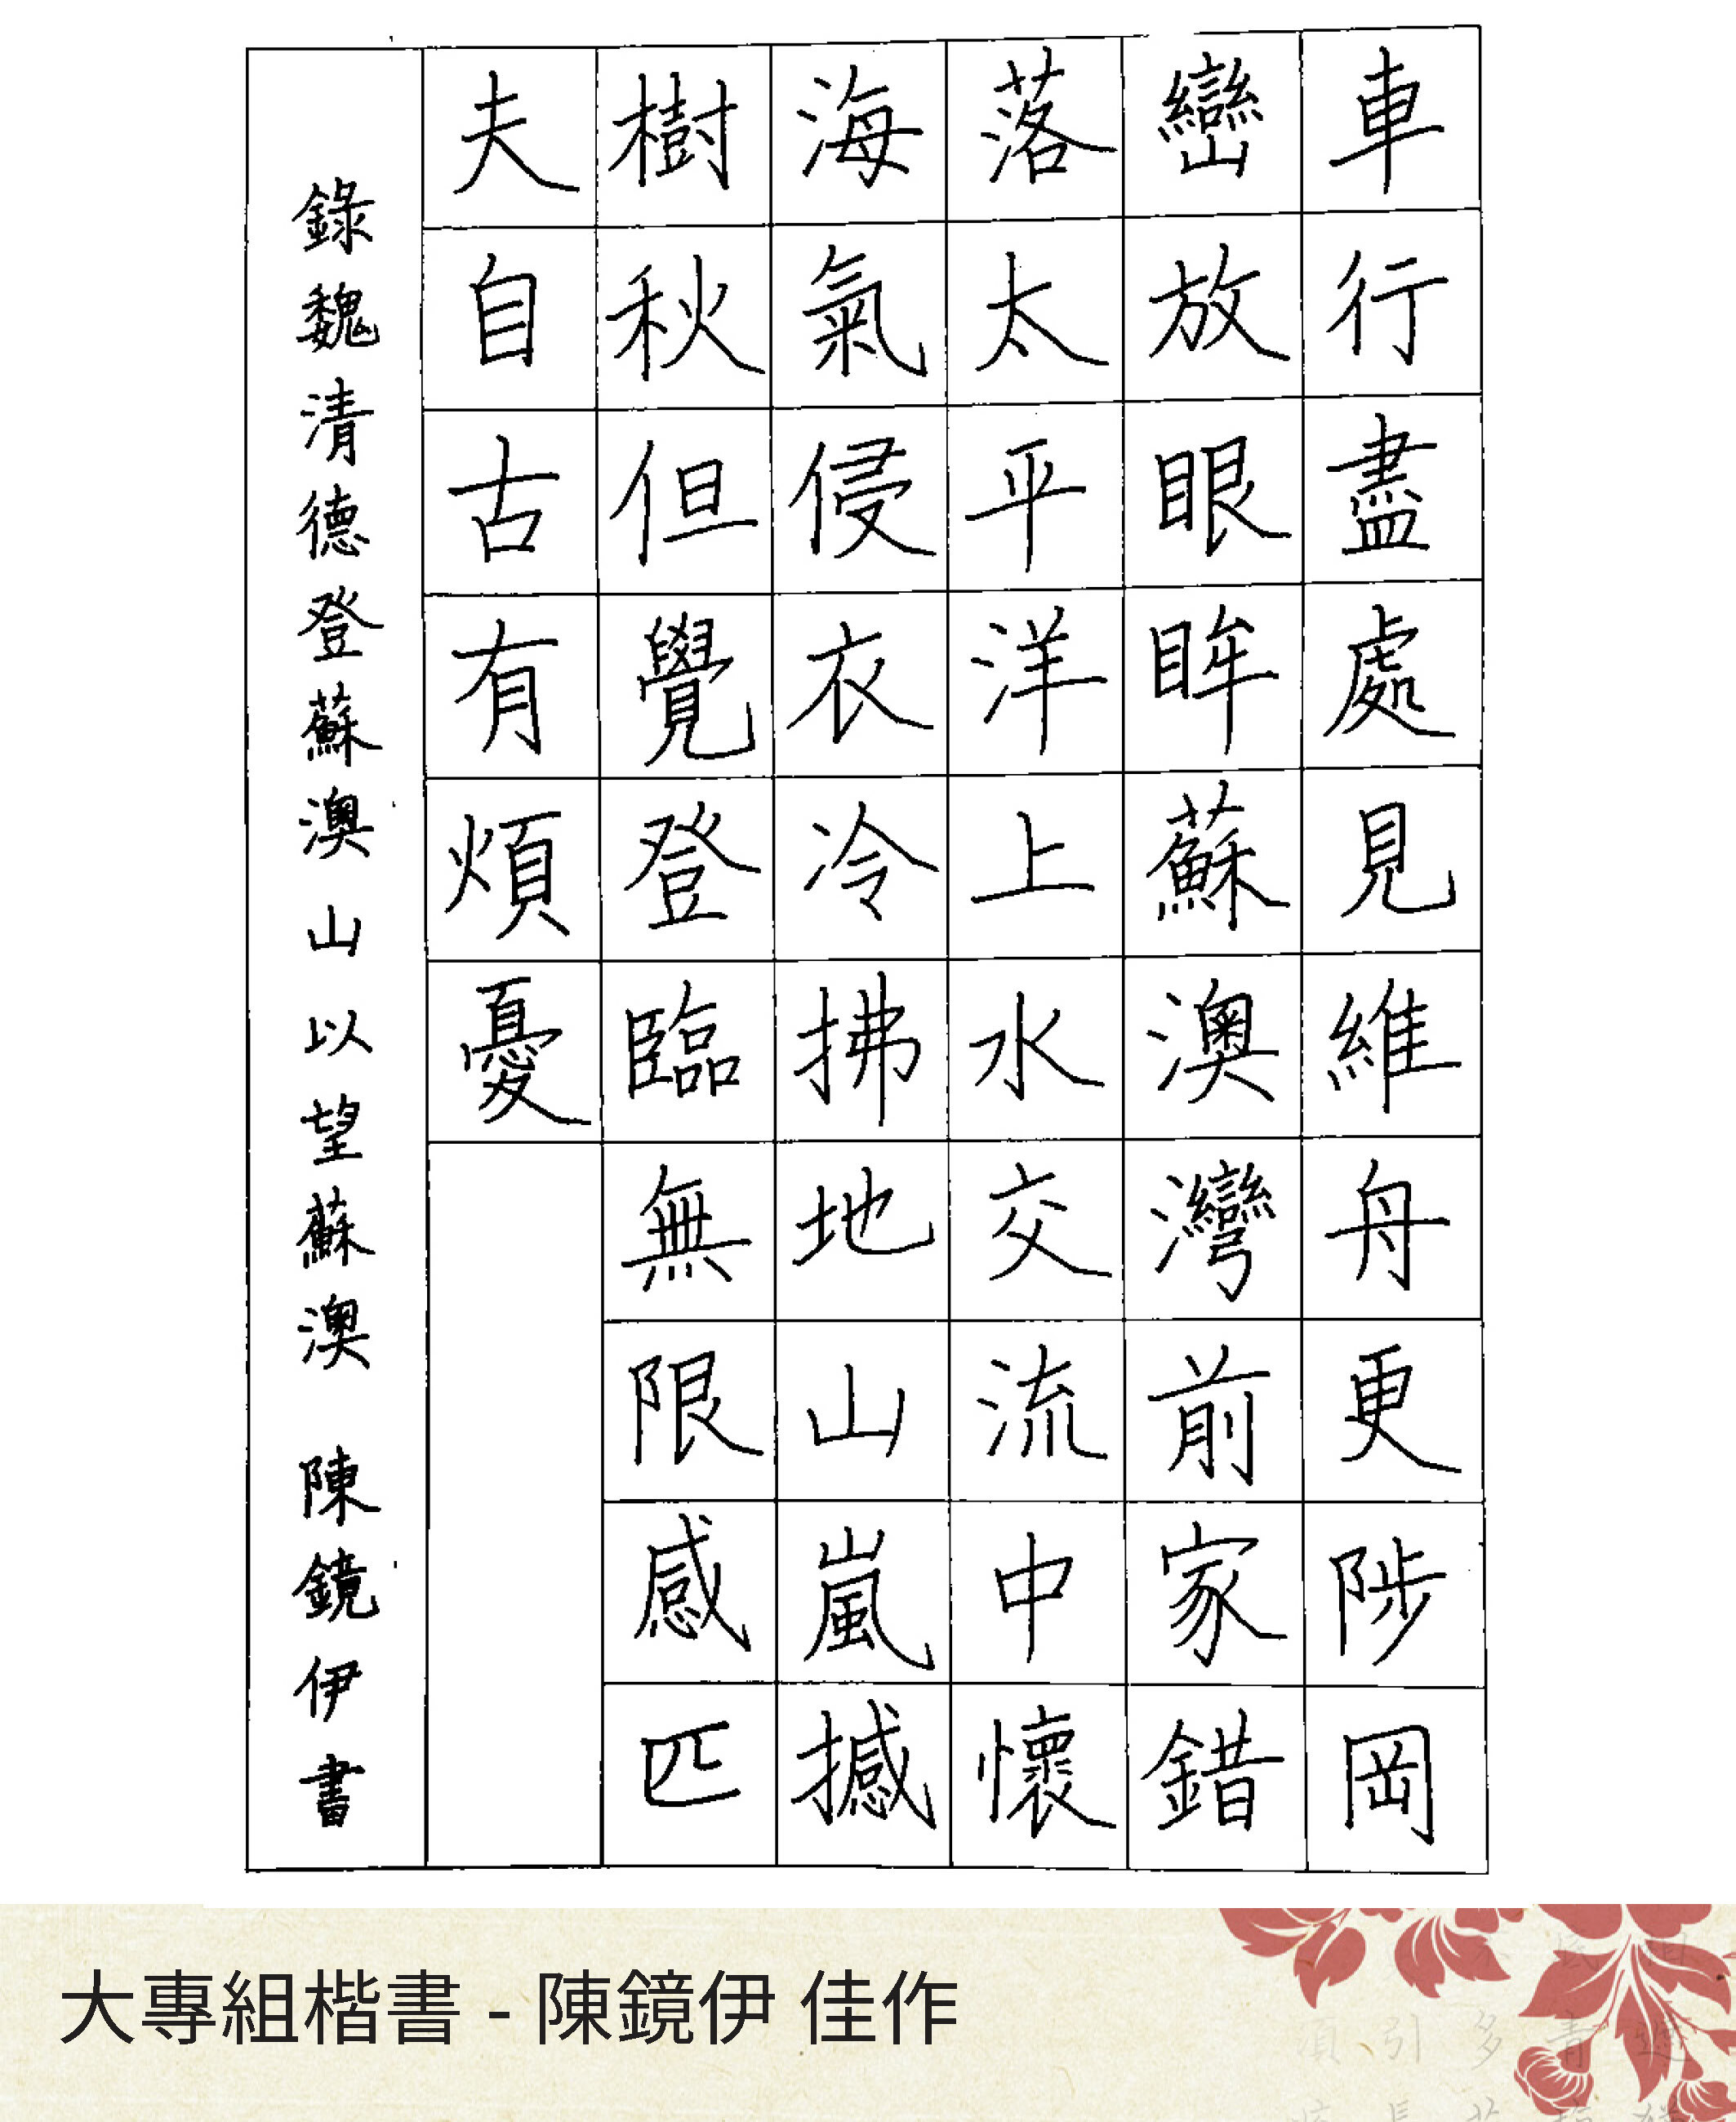 車行盡處見維舟更陟岡
巒放眼眸蘇澳灣前家錯
落太平洋上水交流中懷
海氣侵衣冷拂地山嵐撼
樹秋但覺登臨無限感匹
夫自古有煩憂
錄魏清德登蘇澳山以望蘇澳 陳鏡伊書
大專組楷書 - 陳鏡伊 佳作